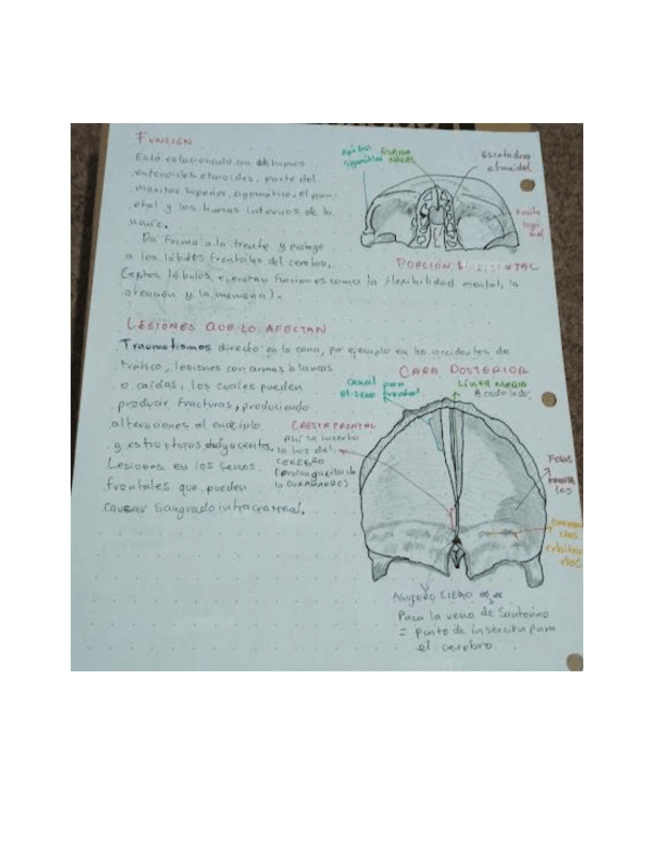 FUNCIÓN
Está relacionado con
esfenoides, etmoides, parte del
maxilar superior, cigomático, el pari
etal y los huesos internos de la
Da forma a la frente y protege
a los lóbulos frontales del cerebro.
lóbulos, ejecutan funciones como la flexibilidad mental, la
atención y la memoria).
ESPINA
NASAL
Escotadura
etmoidal
PORCIÓN
LESIONES QUE LO AFECTAN
Traumatismos directo en la zona, por ejemplo en los accidentes de
tráfico, lesiones con armas blancas
o caídas, los cuales pueden
producir fracturas, produciendo
alteraciones al
y estructuras adyacentes.
Lesiones en los senos
frontales que pueden
causar sangrado intracraneal.
CARA POSTERIOR
canal para
el seno frontal
LÍNEA MEDIA
A cada lado:
CRESTA FRONTAL
Ahí se inserta
la hoz del
CEREBRO
(prolongación de
la DURAMADRE)
Fosas
orbita
AGUJERO CIEGO
Para la vena de Santorino
= punto de inserción para
el cerebro.